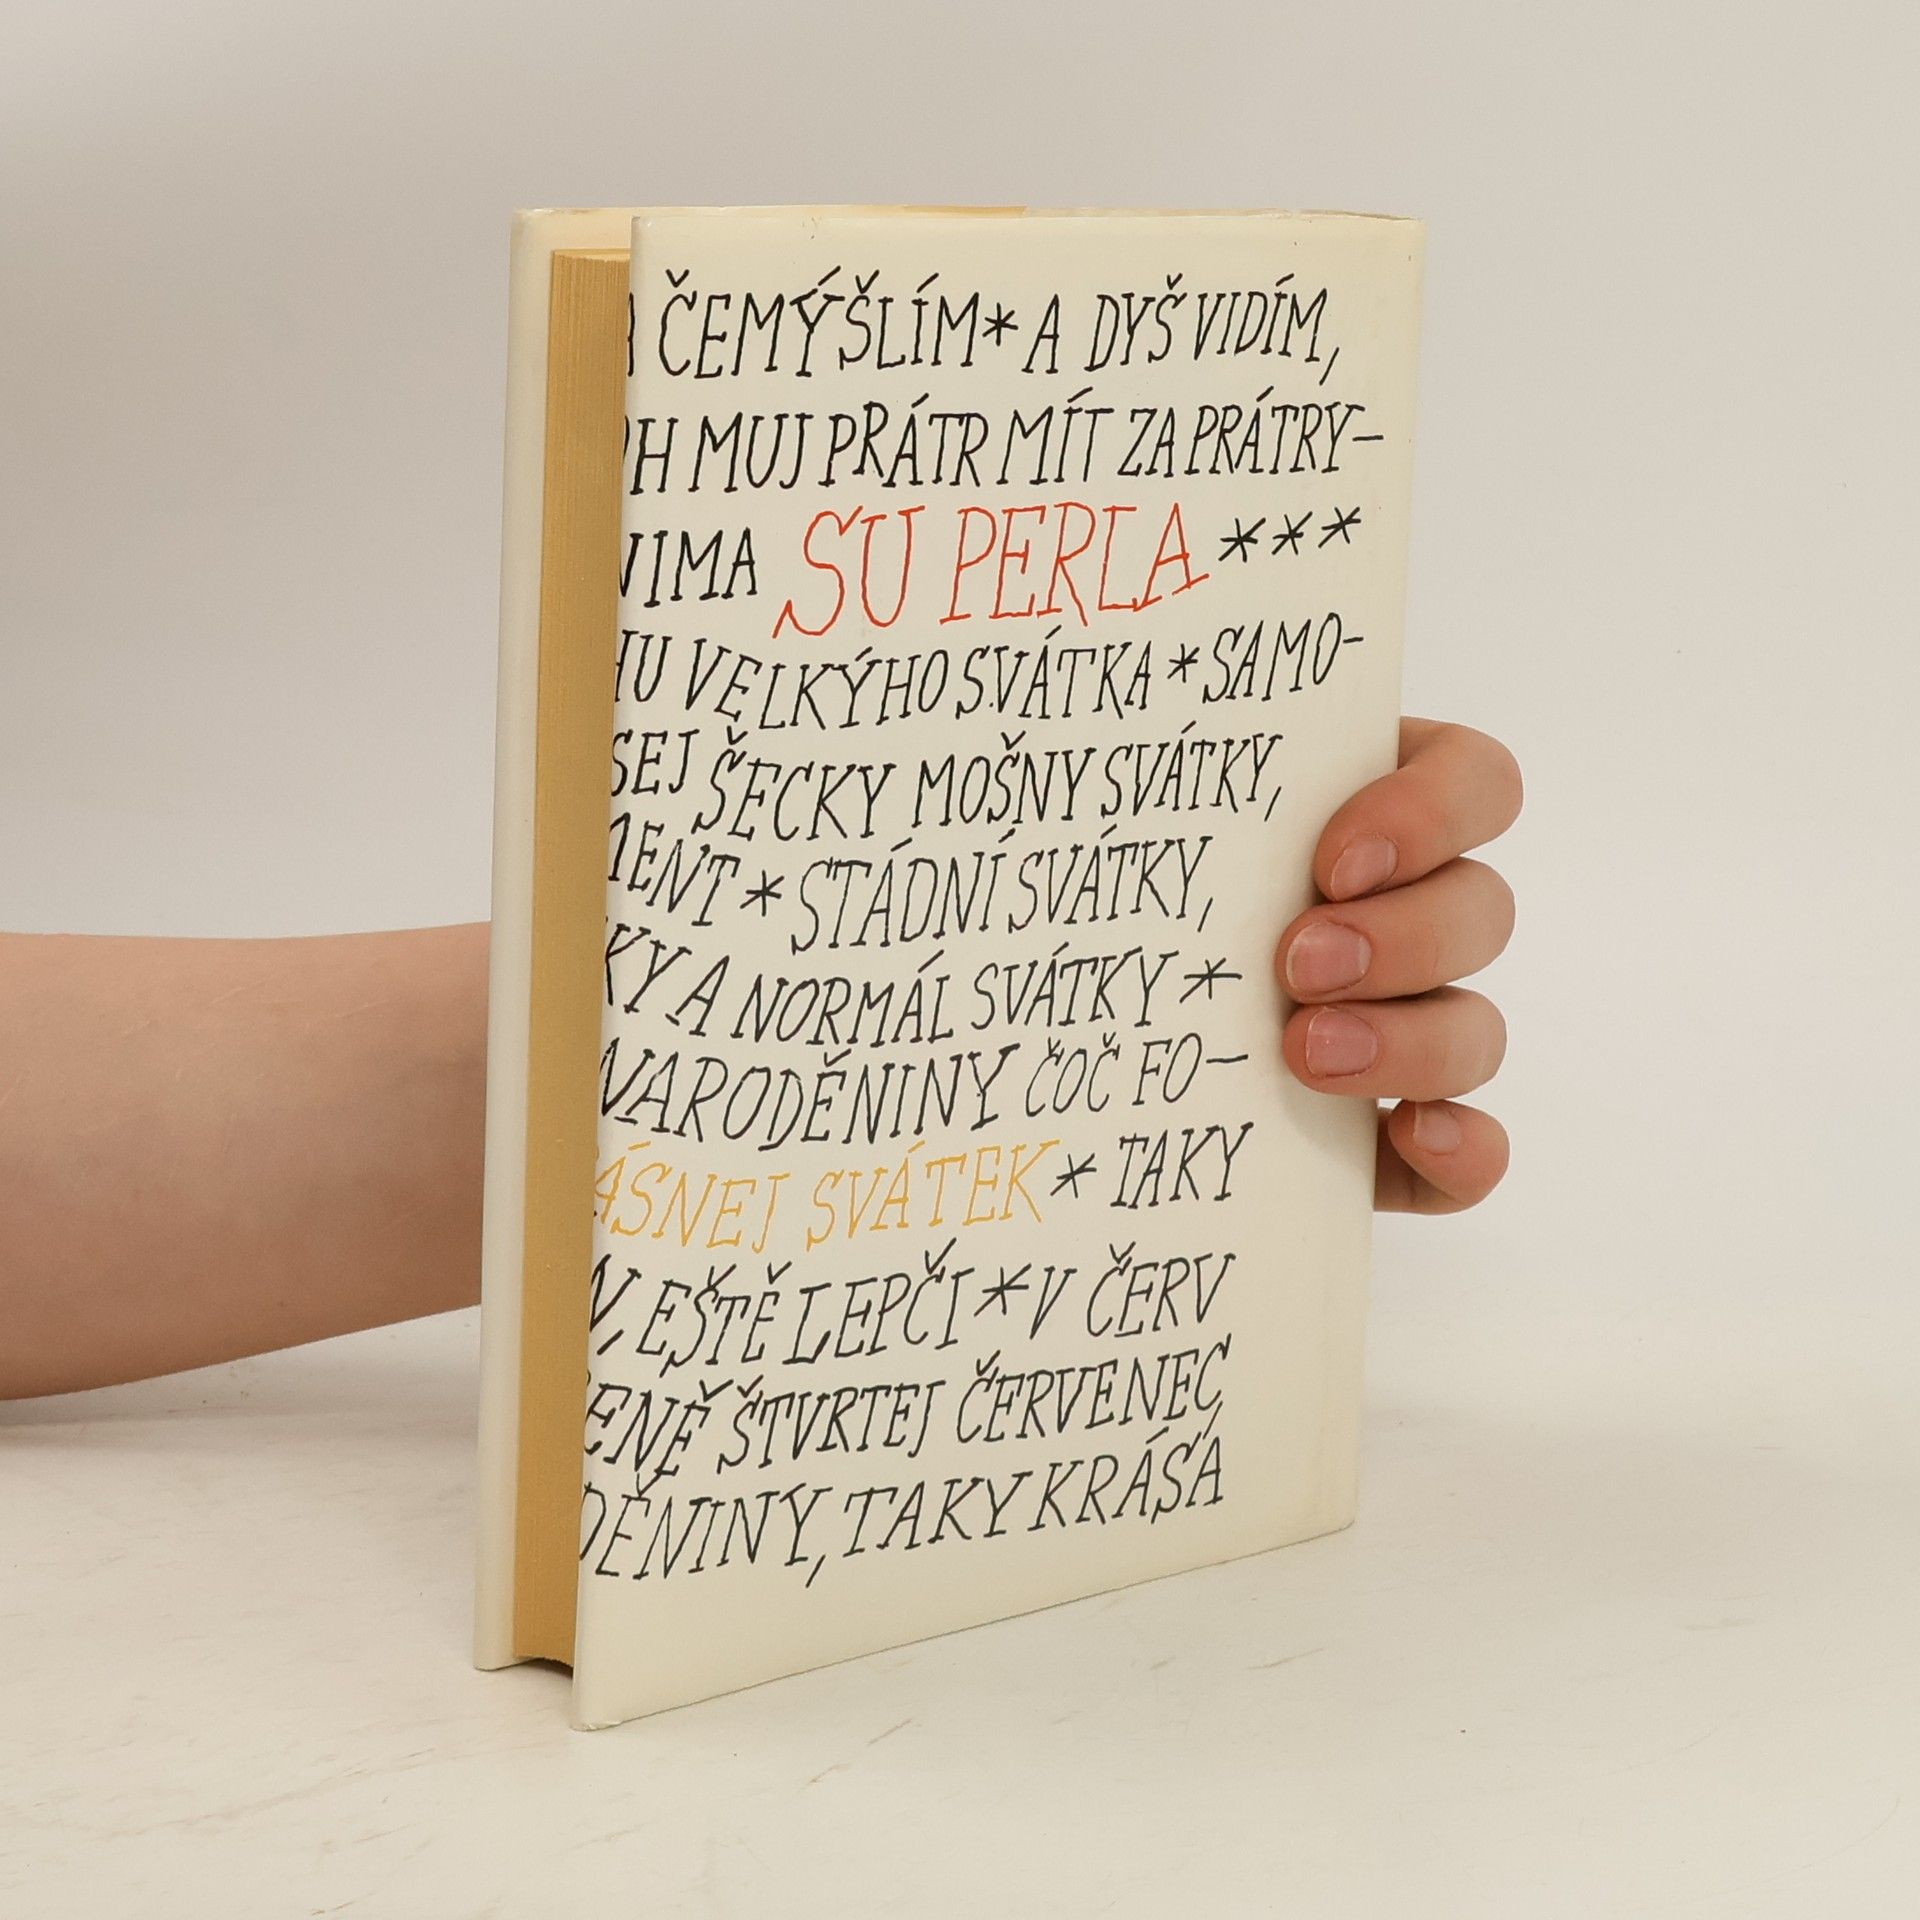 ČEMÝŠLÍM * A DYŠ VIDÍM,
MUJ PRÁTR MÍT ZA PRÁTRY-
SU PERLA ***
VELKÝHO SVÁTKA * SAMO-
SEJ ŠECKY MOŠNY SVÁTKY,
MENT * STÁDNÍ SVÁTKY,
KY A NORMÁL SVÁTKY *
NARODĚNINY ČOČ FO-
ÁSNEJ SVÁTEK * TAKY
EŠTĚ LEPČI * V ČERV
ENĚ ŠTVRTEJ ČERVENEC,
DĚNINY, TAKY KRÁSÁ